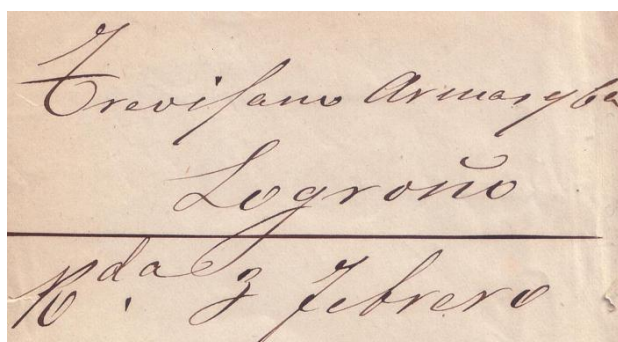 Trevisano Armas y Ca
Logroño
Rda. 3 Febrero